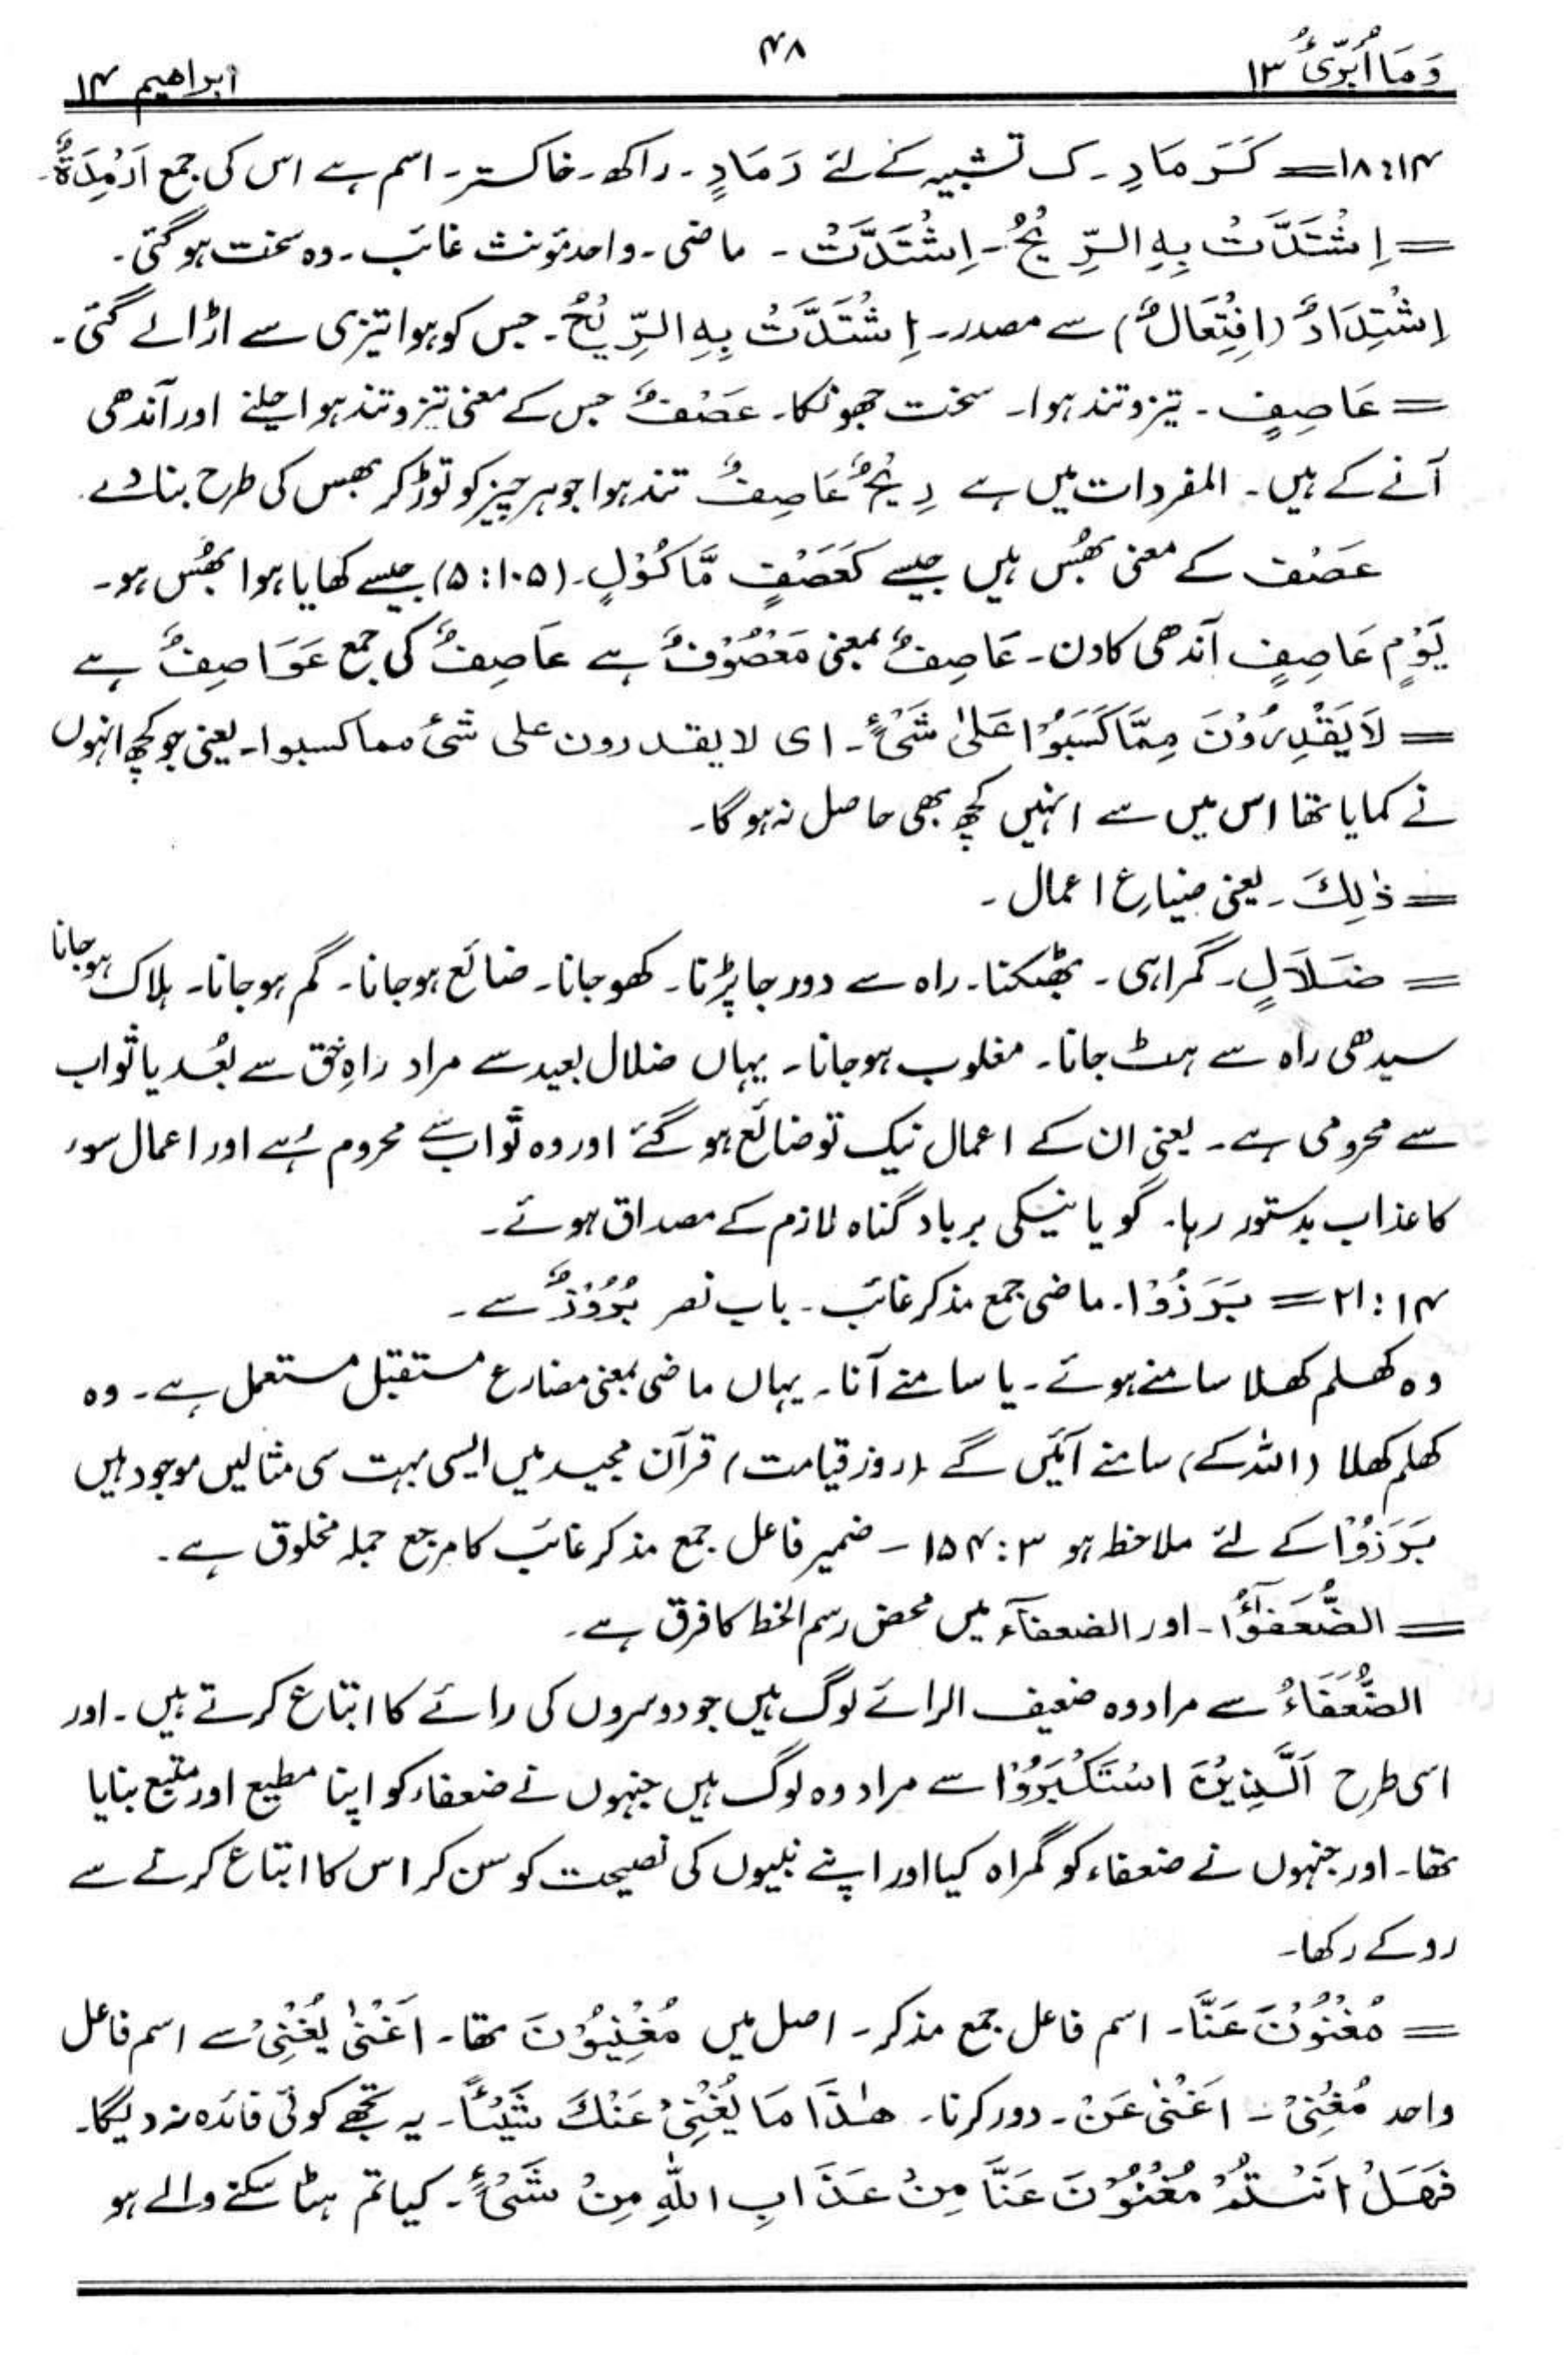 وَمَا اُبَرِّیُٔ ۱۳
۴۸
ابراھیم ۱۴
۱۴:۱۸= کَرَمَادٍ۔ ک تشبیہ کے لئے رَمَادٍ۔ راکھ۔ خاکستر۔ اسم ہے اس کی جمع اَرْمِدَۃٌ۔
= اِشْتَدَّتْ بِہِ الرِّیْحُ۔ اِشْتَدَّتْ ۔ ماضی۔ واحد مؤنث غائب۔ وہ سخت ہوگئی۔
اِشْتِدَادٌ (اِفْتِعَالٌ) سے مصدر۔ اِشْتَدَّتْ بِہِ الرِّیْحُ۔ جس کو ہوا تیزی سے اڑالے گئی۔
= عَاصِفٍ۔ تیز و تند ہوا۔ سخت جھونکا۔ عَصْفٌ جس کے معنی تیز و تند ہوا چلنے اور آندھی
آنے کے ہیں۔ المفردات میں ہے رِیْحٌ عَاصِفٌ تند ہوا جو ہر چیز کو توڑ کر بھس کی طرح بنا دے۔
عَصْف کے معنی بھُس ہیں جیسے کَعَصْفٍ مَّاکُوْلٍ۔ (۱۰۵:۵) جیسے کھایا ہوا بھُس ہو۔
یَوْمٍ عَاصِفٍ آندھی کا دن۔ عَاصِفٌ بمعنی مَعْصُوْفٌ ہے عَاصِفٌ کی جمع عَوَاصِفٌ ہے
= لَا یَقْدِرُوْنَ مِمَّا کَسَبُوْا عَلٰی شَیْءٍ۔ ای لا یقدرون علی شیٔ مما کسبوا۔ یعنی جو کچھ انہوں
نے کمایا تھا اس میں سے انہیں کچھ بھی حاصل نہ ہوگا۔
= ذٰلِکَ۔ یعنی ضیاعِ اعمال۔
= ضَلَالٍ۔ گمراہی۔ بھٹکنا۔ راہ سے دور جا پڑنا۔ کھو جانا۔ ضائع ہو جانا۔ گم ہو جانا۔ ہلاک ہو جانا
سیدھی راہ سے ہٹ جانا۔ مغلوب ہو جانا۔ یہاں ضلال بعید سے مراد راہِ حق سے بُعد یا ثواب
سے محرومی ہے۔ یعنی ان کے اعمال نیک تو ضائع ہو گئے اور وہ ثواب سے محروم رہے اور اعمال سوء
کا عذاب بدستور رہا۔ گویا نیکی برباد گناہ لازم کے مصداق ہوئے۔
۱۴:۲۱= بَرَزُوْا۔ ماضی جمع مذکر غائب۔ باب نصر بُرُوْزٌ سے۔
وہ کھلم کھلا سامنے ہوئے۔ یا سامنے آنا۔ یہاں ماضی بمعنی مضارع مستقبل مستعمل ہے۔ وہ
کھلم کھلا (اللہ کے) سامنے آئیں گے (روز قیامت) قرآن مجید میں ایسی بہت سی مثالیں موجود ہیں
بَرَزُوْا کے لئے ملاحظہ ہو ۳:۱۵۴۔ ضمیر فاعل جمع مذکر غائب کا مرجع جملہ مخلوق ہے۔
= الضُّعَفٰٓؤُا۔ اور الضعفآء میں محض رسم الخط کا فرق ہے۔
الضُّعَفَاءُ سے مراد وہ ضعیف الرائے لوگ ہیں جو دوسروں کی رائے کا اتباع کرتے ہیں۔ اور
اسی طرح اَلَّذِیْنَ اسْتَکْبَرُوْا سے مراد وہ لوگ ہیں جنہوں نے ضعفاء کو اپنا مطیع اور متبع بنایا
تھا۔ اور جنہوں نے ضعفاء کو گمراہ کیا اور اپنے نبیوں کی نصیحت کو سن کر اس کا اتباع کرنے سے
روکے رکھا۔
= مُغْنُوْنَ عَنَّا۔ اسم فاعل جمع مذکر۔ اصل میں مُغْنِیُوْنَ تھا۔ اَغْنٰی یُغْنِیْ سے اسم فاعل
واحد مُغْنِیْ۔ اَغْنٰی عَنْ۔ دور کرنا۔ ھٰذَا مَا یُغْنِیْ عَنْکَ شَیْئًا۔ یہ تجھے کوئی فائدہ نہ دیگا۔
فَھَلْ اَنْتُمْ مُغْنُوْنَ عَنَّا مِنْ عَذَابِ اللّٰہِ مِنْ شَیْءٍ۔ کیا تم ہٹا سکنے والے ہو